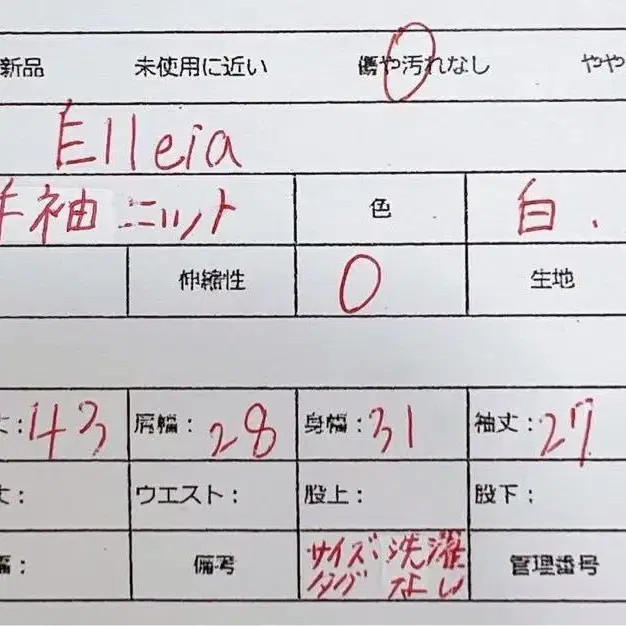 新品 未使用に近い 傷や汚れなし やや
Elleia
半袖ニット 色 白.
伸縮性 0 生地
丈:43 肩幅:28 身幅:31 袖丈:27
丈: ウエスト: 股上: 股下:
幅: 備考 サイズ・洗濯 管理番号
タグ なし